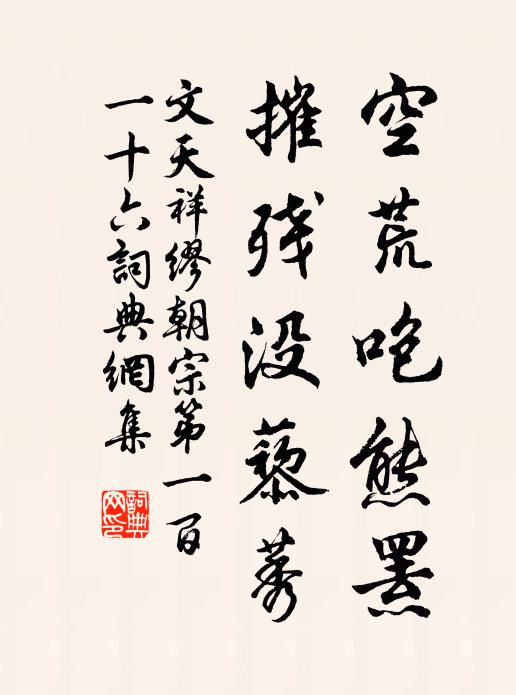 空荒咆熊罴
摧残没藜莠
文天祥缪朝宗第一百
一十六詞典網集
詞典
网印